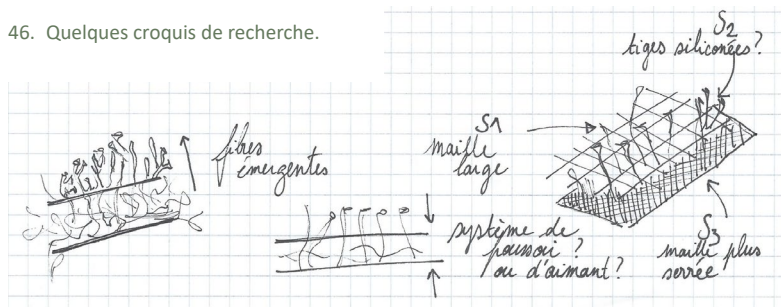 46. Quelques croquis de recherche.
fibres
émergentes
système de
poussoir ?
ou d'aimant ?
S1
maille
large
S2
tiges siliconées ?
S3
maille plus
serrée